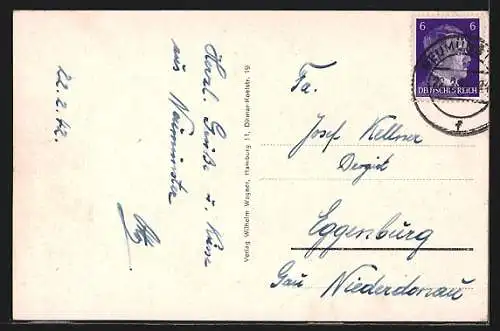 22. 2. 42.
Herzl. Grüße u. Küsse
aus Neumünster
Verlag Wilhelm Wagner, Hamburg 11, Ditmar-Koelstr. 19
6 6
DEUTSCHES REICH
NEUMÜNSTER
f
Fa.
Josef Kellner
Eggenburg
Gau Niederdonau